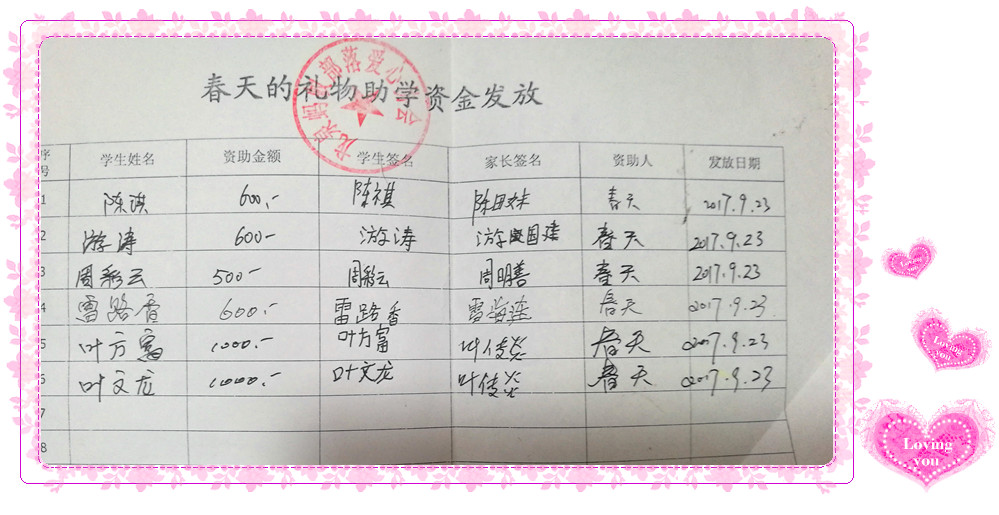 春天的礼物助学资金发放
部落爱心
序号 学生姓名 资助金额 学生签名 家长签名 资助人 发放日期
1 陈淇 600,- 陈祺 陈田妹 春天 2017.9.23
2 游涛 600- 游涛 游国建 春天 2017.9.23
3 周彩云 500- 周彩云 周明善 春天 2017.9.23
4 雷路香 600.- 雷路香 雷海莲 春天 2017.9.23
5 叶方富 1000.- 叶方富 叶传炎 春天 2017.9.23
叶文龙 1000.- 叶文龙 叶传炎 春天 2017.9.23
7
8
Loving
Loving
you
Loving
you